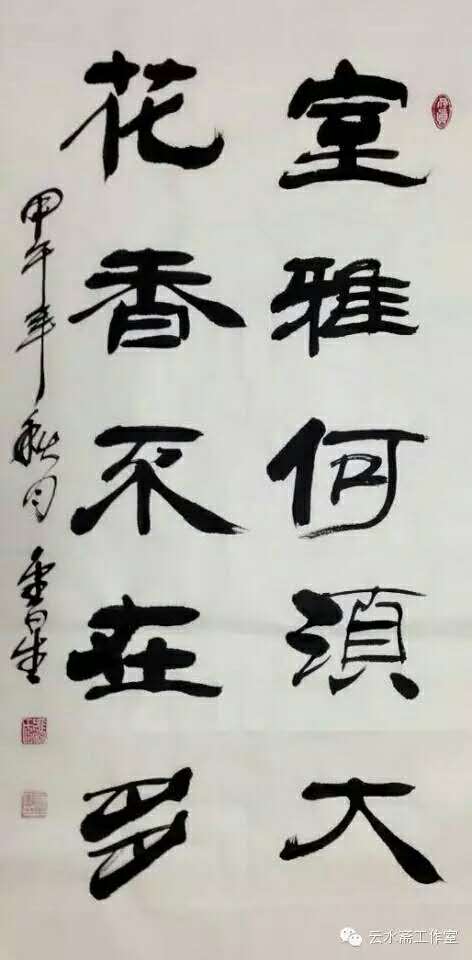 室雅何須大
花香不在多
甲午年秋月金星
云水斋工作室